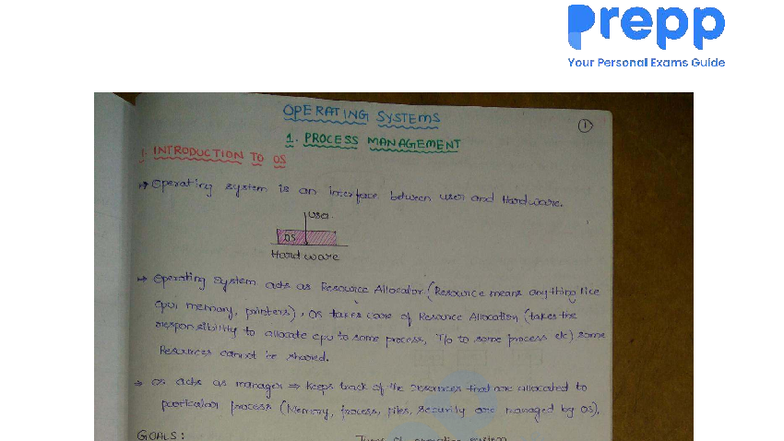 Prepp
Your Personal Exams Guide
OPERATING SYSTEMS
1
1. PROCESS MANAGEMENT
1. INTRODUCTION TO OS
→ Operating system is an interface between user and Hardware.
User
OS
Hardware
→ Operating System acts as Resource Allocator (Resource means anything like
cpu, memory, printers), OS takes care of Resource Allocation (takes the
responsibility to allocate cpu to some process, I/o to some process etc) some
Resources cannot be shared.
→ OS acts as manager ⇒ keeps track of the resources that are allocated to
particular process (Memory, process, files, security are managed by OS),
GOALS:
Types of operating system